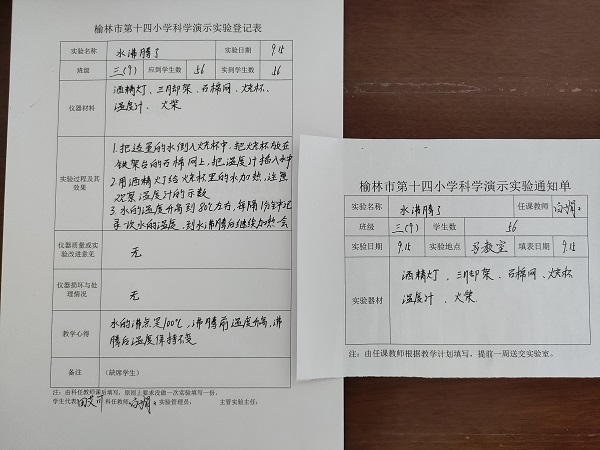 榆林市第十四小学科学演示实验登记表
实验名称 水沸腾了 实验日期 9.15
班级 三(9) 应到学生数 56 实到学生数 56
仪器材料 酒精灯、三脚架、石棉网、烧杯、
温度计、火柴
实验过程及其效果
1.把适量的水倒入烧杯中,把烧杯放在
铁架台的石棉网上,把温度计插入水中
2.用酒精灯给烧杯里的水加热,注意
观察温度计的示数
3.水的温度升高到80℃左右,每隔1分钟记
录一次水的温度,到水沸腾后继续加热一会
仪器质量或实验改进意见 无
仪器损坏与处理情况 无
教学心得 水的沸点是100℃,沸腾前温度升高,沸
腾后温度保持不变
备注 (缺席学生)
注:由科任教师课后填写,原则上要求没做一次实验填写一份。
学生代表: 科任教师: 实验管理员: 主管实验主任:
榆林市第十四小学科学演示实验通知单
实验名称 水沸腾了 任课教师
班级 三(9) 学生数 56
实验日期 9.15 实验地点 教室 填表日期 9.15
实验器材 酒精灯、三脚架、石棉网、烧杯
温度计、火柴
注:由任课教师根据教学计划填写,提前一周送交实验室。